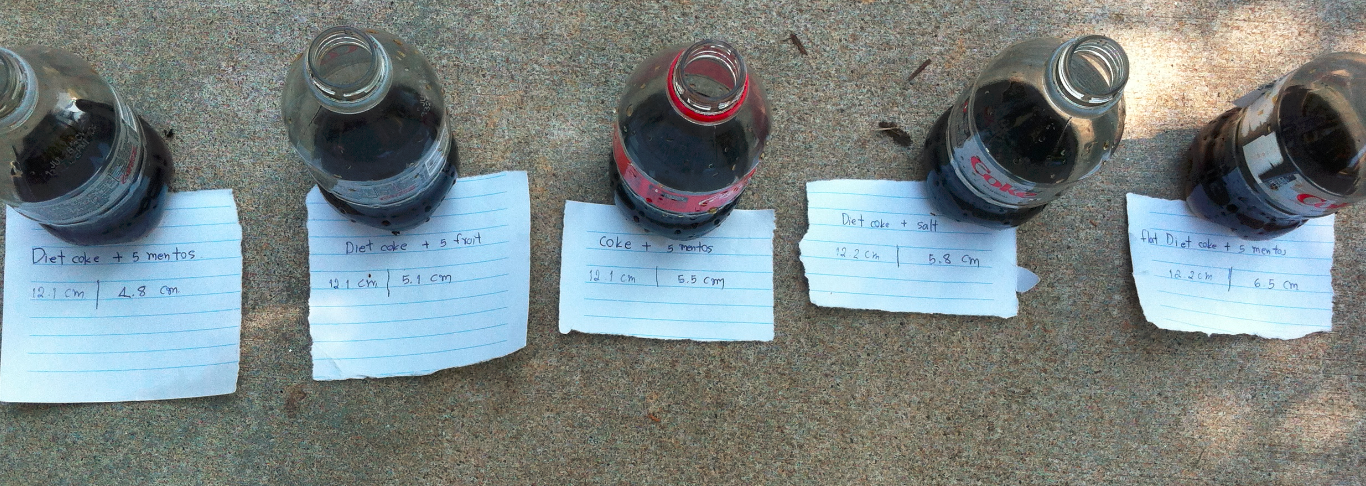 Diet coke + 5 mentos
12.1 cm | 4.8 cm
Diet coke + 5 fruit
12.1 cm | 5.1 cm
Coke + 5 mentos
12.1 cm | 5.5 cm
Diet coke + salt
12.2 cm | 5.8 cm
Coke
flat Diet coke + 5 mentos
12.2 cm | 6.5 cm